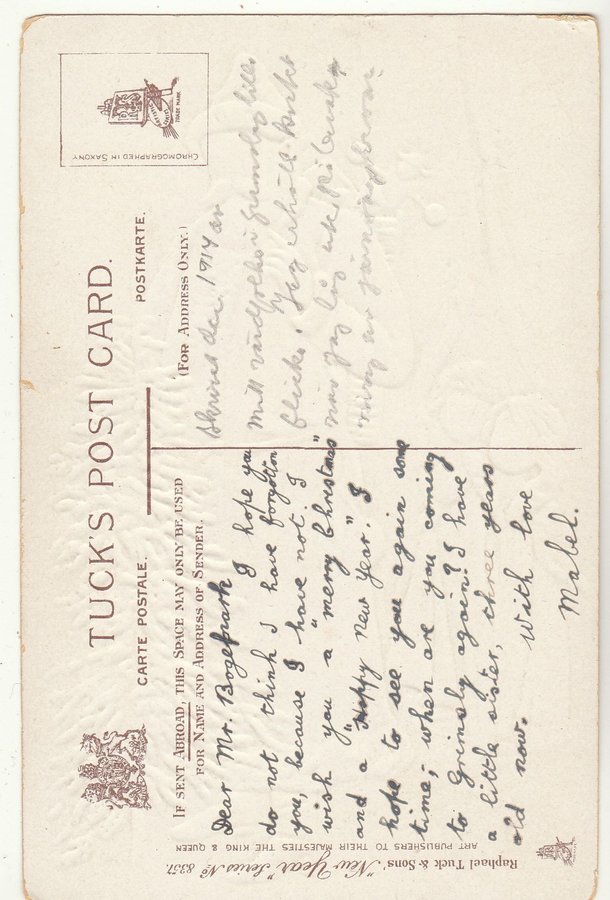 TUCK'S POST CARD.
CARTE POSTALE.
POSTKARTE.
IF SENT ABROAD, THIS SPACE MAY ONLY BE USED
FOR NAME AND ADDRESS OF SENDER.
(FOR ADDRESS ONLY.)
CHROMOGRAPHED IN SAXONY
TRADE MARK
Dear Mr. I hope you
do not think I have forgotton
you, because I have not. I
wish you a "merry Christmas"
and a "Happy new Year." I
hope to see you again some
time; when are you coming
to Grimsby again? I have
a little sister, three years
old now.
With love
Mabel.
dec. 1914 av
Mitt
flicka. Jag erhöll kortet
när jag låg
Raphael Tuck & Sons' "New Year" Series No 8351.
ART PUBLISHERS TO THEIR MAJESTIES THE KING & QUEEN